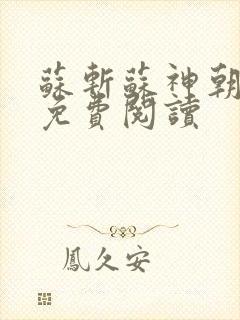 蘇斬蘇神朝
免費閱讀
鳳久安